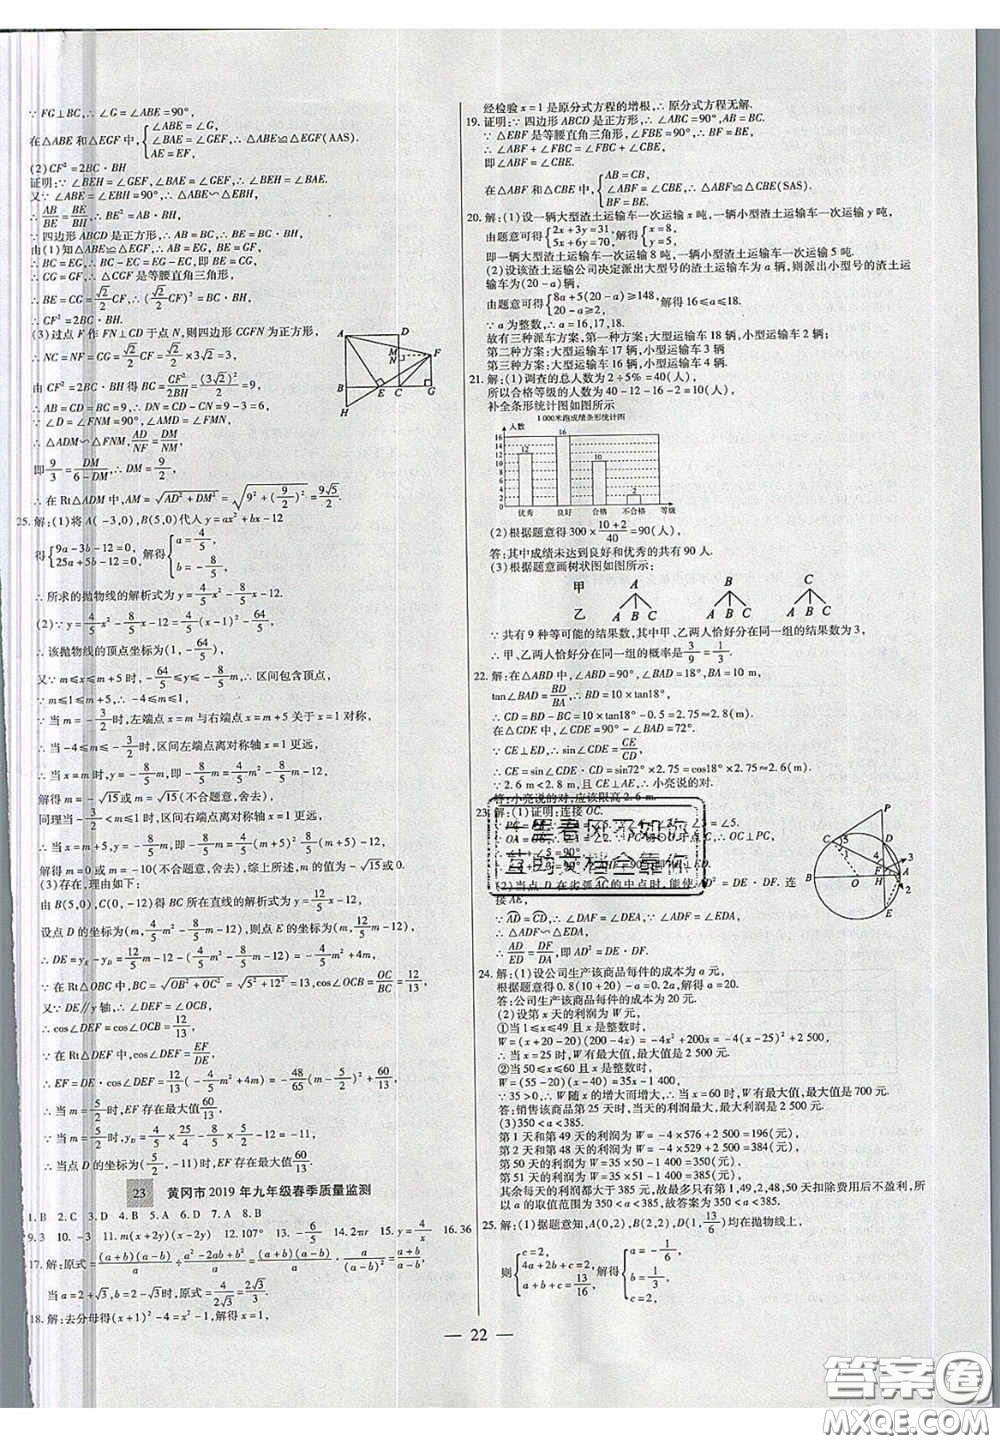 ∵ FG⊥BC,∴∠G=∠ABE=90°,
在△ABE 和△EGF 中,{∠ABE=∠G, ∠BAE=∠GEF, AE=EF, ∴△ABE≌△EGF(AAS).
(2)CF²=2BC·BH
证明:∵∠BEH=∠GEF,∠BAE=∠GEF,∴∠BEH=∠BAE.
又∵∠ABE=∠EBH=90°,∴△ABE∽△EBH,
∴AB/BE=BE/BH,∴BE²=AB·BH,
∵四边形 ABCD 是正方形,∴AB=BC,∴BE²=BC·BH
由(1)知△ABE≌△EGF,∴AB=EG,BE=GF,
∴BC=EG,∴BC-EC=EG-EC,即BE=CG,
∴CG=GF,∴△CGF 是等腰直角三角形,
∴BE=CG=√2/2 CF,∴(√2/2 CF)²=BC·BH,
∴CF²=2BC·BH;
(3)过点 F 作 FN⊥CD 于点 N,则四边形 CGFN 为正方形,
∴NC=NF=CG=√2/2 CF=√2/2×3√2=3,
由 CF²=2BC·BH 得 BC=CF²/2BH=(3√2)²/2=9,
∴AD=CD=BC=9,∴DN=CD-CN=9-3=6,
∵∠D=∠FNM=90°,∠AMD=∠FMN,
∴△ADM∽△FNM,AD/NF=DM/NM,
即9/3=DM/6-DM,∴DM=9/2,
∴在 Rt△ADM 中,AM=√AD²+DM²=√9²+(9/2)²=9√5/2.
25.解:(1)将 A(-3,0),B(5,0)代入 y=ax²+bx-12
得{9a-3b-12=0, 25a+5b-12=0, 解得{a=4/5, b=-8/5,
∴所求的抛物线的解析式为 y=4/5x²-8/5x-12.
(2)∵y=4/5x²-8/5x-12=4/5(x-1)²-64/5,
∴该抛物线的顶点坐标为(1,-64/5),
又∵m≤x≤m+5 时,-64/5≤y≤-8/5m,∴区间包含顶点,
∵m≤1≤m+5,∴-4≤m≤1.
∵当 m=-3/2时,左端点 x=m 与右端点 x=m+5 关于 x=1 对称,
∴当-4≤m≤-3/2时,区间左端点离对称轴 x=1 更远,
∴当 x=m 时,y=-8/5m,即-8/5m=4/5m²-8/5m-12,
解得 m=-√15或 m=√15(不合题意,舍去);
同理当-3/2<m≤1 时,区间右端点离对称轴 x=1 更远,
∴当 x=m+5 时,y=-8/5m,即-8/5m=4/5(m+5)²-8/5(m+5)-12,
解得 m=0 或 m=-10(不合题意,舍去),∴m 的值为-√15或 0;
(3)存在,理由如下:
由 B(5,0),C(0,-12)得 BC 所在直线的解析式为 y=12/5x-12,
设点 D(m,4/5m²-8/5m-12),则点 E(m,12/5m-12),
∴DE=yE-yD=12/5m-12-(4/5m²-8/5m-12)=-4/5m²+4m,
∵在 Rt△OBC 中,BC=√OB²+OC²=√5²+12²=13,∴cos∠OCB=OC/BC=12/13,
又∵DE//y 轴,∴∠DEF=∠OCB,
∴cos∠DEF=cos∠OCB=12/13,
∵在 Rt△DEF 中,cos∠DEF=EF/DE,
∴EF=DE·cos∠DEF=12/13(-4/5m²+4m)=-48/65(m-5/2)²+60/13,
∴当 m=5/2时,EF 存在最大值60/13;
∵当 m=5/2时,yD=4/5×25/4-8/5×5/2-12=-11,
∴当点 D 的坐标为(5/2,-11)时,EF 存在最大值60/13.
23 黄冈市 2019 年九年级春季质量监测
1.B 2.C 3.D 4.B 5.A 6.D 7.A 8.B
9.3 10.-3 11.m(x+2y)(x-2y) 12.107° 13.-6/5 14.2πr 15.y=4/x 16.36
17.解:原式=(a+b)(a-b)/a÷a²-2ab+b²/a=(a+b)(a-b)/a·a/(a-b)²=a+b/a-b,
当 a=2+√3,b=2-√3时,原式=4/2√3=2√3/3.
18.解:去分母得(x+1)²-4=x²-1,解得 x=1,
经检验 x=1 是原分式方程的增根,∴原分式方程无解.
19.证明:∵四边形 ABCD 是正方形,∴∠ABC=90°,AB=BC.
∵△EBF 是等腰直角三角形,∠FBE=90°,∴BF=BE,
∴∠ABC-∠FBC=∠FBE-∠FBC,
即∠ABF=∠CBE.
在△ABF 和△CBE 中,{AB=CB, ∠ABF=∠CBE, BF=BE. ∴△ABF≌△CBE(SAS).
20.解:(1)设一辆大型渣土运输车一次运输 x 吨,一辆小型渣土运输车一次运输 y 吨,
由题意可得{2x+3y=31, 5x+6y=70, 解得{x=8, y=5.
一辆大型渣土运输车一次运输 8 吨,一辆小型渣土运输车一次运输 5 吨.
(2)设该渣土运输公司决定派出大型号的渣土运输车为 a 辆,则派出小型号的渣土运输车为(20-a)辆,
由题意可得{8a+5(20-a)≥148, 20-a≥2, 解得 16≤a≤18.
∵a 为整数,∴a=16,17,18.
故有三种派车方案:第一种方案:大型运输车 18 辆,小型运输车 2 辆;
第二种方案:大型运输车 17 辆,小型运输车 3 辆
第三种方案:大型运输车 16 辆,小型运输车 4 辆.
21.解:(1)调查的总人数为 2÷5%=40(人),
所以合格等级的人数为 40-12-16-2=10(人)
补全条形统计图如图所示
1 000米跑成绩条形统计图
人数
16 14 12 10 8 6 4 2 0
12 16 10 2
优秀 良好 合格 不合格 等级
(2)根据题意得 300×10+2/40=90(人),
答:其中成绩未达到良好和优秀的共有 90 人.
(3)根据题意画树状图如图所示:
甲 A B C
乙 A B C A B C A B C
∵共有 9 种等可能的结果数,其中甲、乙两人恰好分在同一组的结果数为 3,
∴甲、乙两人恰好分在同一组的概率是3/9=1/3.
22.解:在△ABD 中,∠ABD=90°,∠BAD=18°,BA=10 m,
tan∠BAD=BD/BA,∴BD=10×tan18°,
∴CD=BD-BC=10×tan18°-0.5=2.75≈2.8(m).
在△CDE 中,∠CDE=90°-∠BAD=72°,
∵CE⊥ED,∴sin∠CDE=CE/CD,
∴CE=sin∠CDE×CD=sin72°×2.75=cos18°×2.75≈2.6(m).
∵2.6 m<2.8 m,且 CE⊥AE,∴小亮说的对.
答:小亮说的对,应该限高 2.6 m.
23.解:(1)证明:连接 OC.
(2)当点 D 在劣弧AC的中点时,能使AD²=DE·DF. 连接 AE,
∵AD=CD,∴∠DAF=∠DEA,∵∠ADF=∠EDA,
∴△DAF∽△DEA,
∴AD/ED=DF/DA,即 AD²=DE·DF.
24.解:(1)设公司生产该商品每件的成本为 a 元,
根据题意得 0.8(10+20)-a=20×20%,解得 a=20.
答:公司生产该商品每件的成本为 20 元.
(2)设第 x 天的利润为 W 元,
①当 1≤x≤49 且 x 是整数时,
W=(x+20-20)(200-4x)=-4x²+200x=-4(x-25)²+2 500,
∴当 x=25 时,W 有最大值,最大值是 2 500.
②当 50≤x≤60 且 x 是整数时,
W=(55-20)(x-40)=35x-1 400,
∵35>0,∴W 随 x 的增大而增大,∴当 x=60 时,W 有最大值,最大值是 700 元.
答:销售该商品第 25 天时,当天的利润最大,最大利润是 2 500 元.
(3)350<a<385.
第 1 天和第 49 天的利润为 W=-4×576+2 500=196(元),
第 50 天的利润为 W=35×50-1 400=350(元),
第 51 天的利润为 W=35×51-1 400=385(元),
其余每天的利润都大于 385 元,因此除第 1,49,50 天外,扣除费用后不亏利,所以 a 的取值范围为 350<a<385,故答案为 350<a<385.
25.解:(1)据题意知,A(0,2),B(2,2),D(1,13/6)均在抛物线上,
则{c=2, 4a+2b+c=2, a+b+c=13/16, 解得{a=-1/6, b=1/3, c=2,
— 22 —
一望春风不如你
苦的文档全靠你
答案圈
MXQE.COM